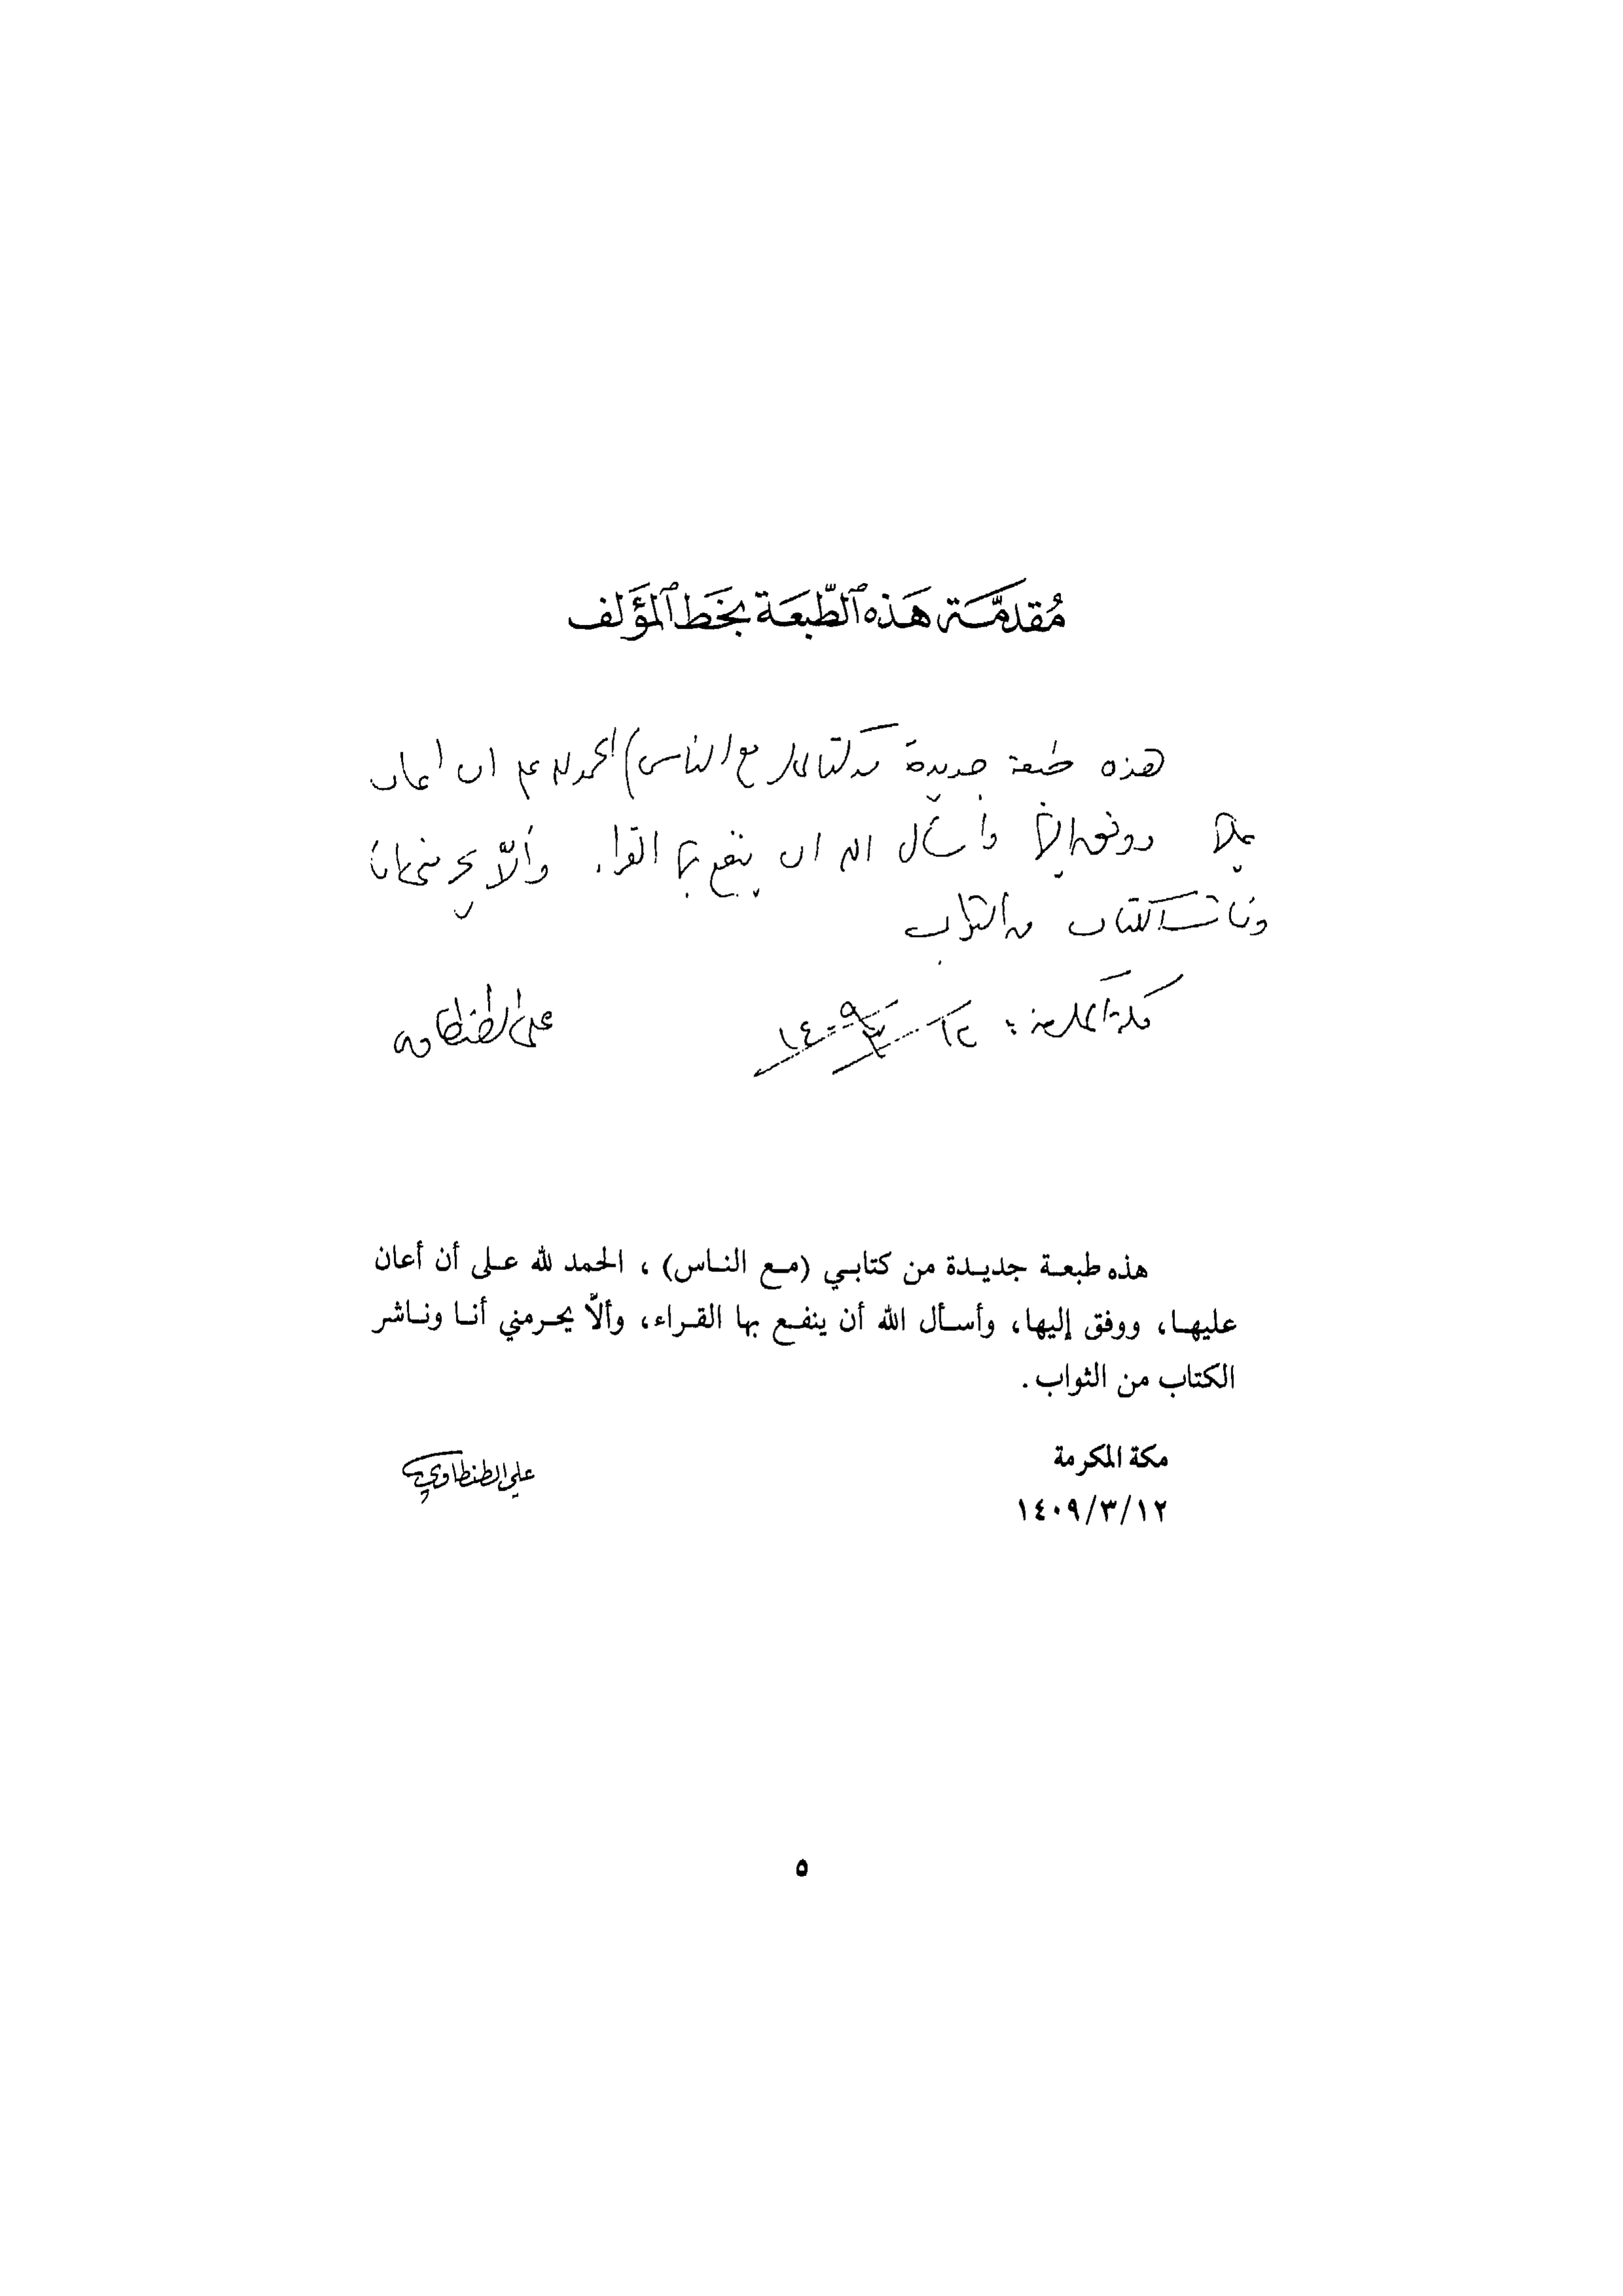 مُقدمَّة هَذه ٱلطّبعَة بخَط ٱلمؤَلف
هذه طبعة جديدة من كتابي (مع الناس) الحمد لله على ان اعان
عليها ووفق اليها وأسأل الله ان ينفع بها القراء وألاّ يحرمني انا
وناشر الكتاب من الثواب
مكة المكرمة : ١٢/٣/١٤٠٩
علي الطنطاوي
هذه طبعة جديدة من كتابي (مع الناس) ، الحمد لله على أن أعان
عليها، ووفق إليها، وأسأل الله أن ينفع بها القراء، وألاّ يحرمني أنا وناشر
الكتاب من الثواب .
مكة المكرمة
١٤٠٩/٣/١٢
علي الطنطاوي
٥